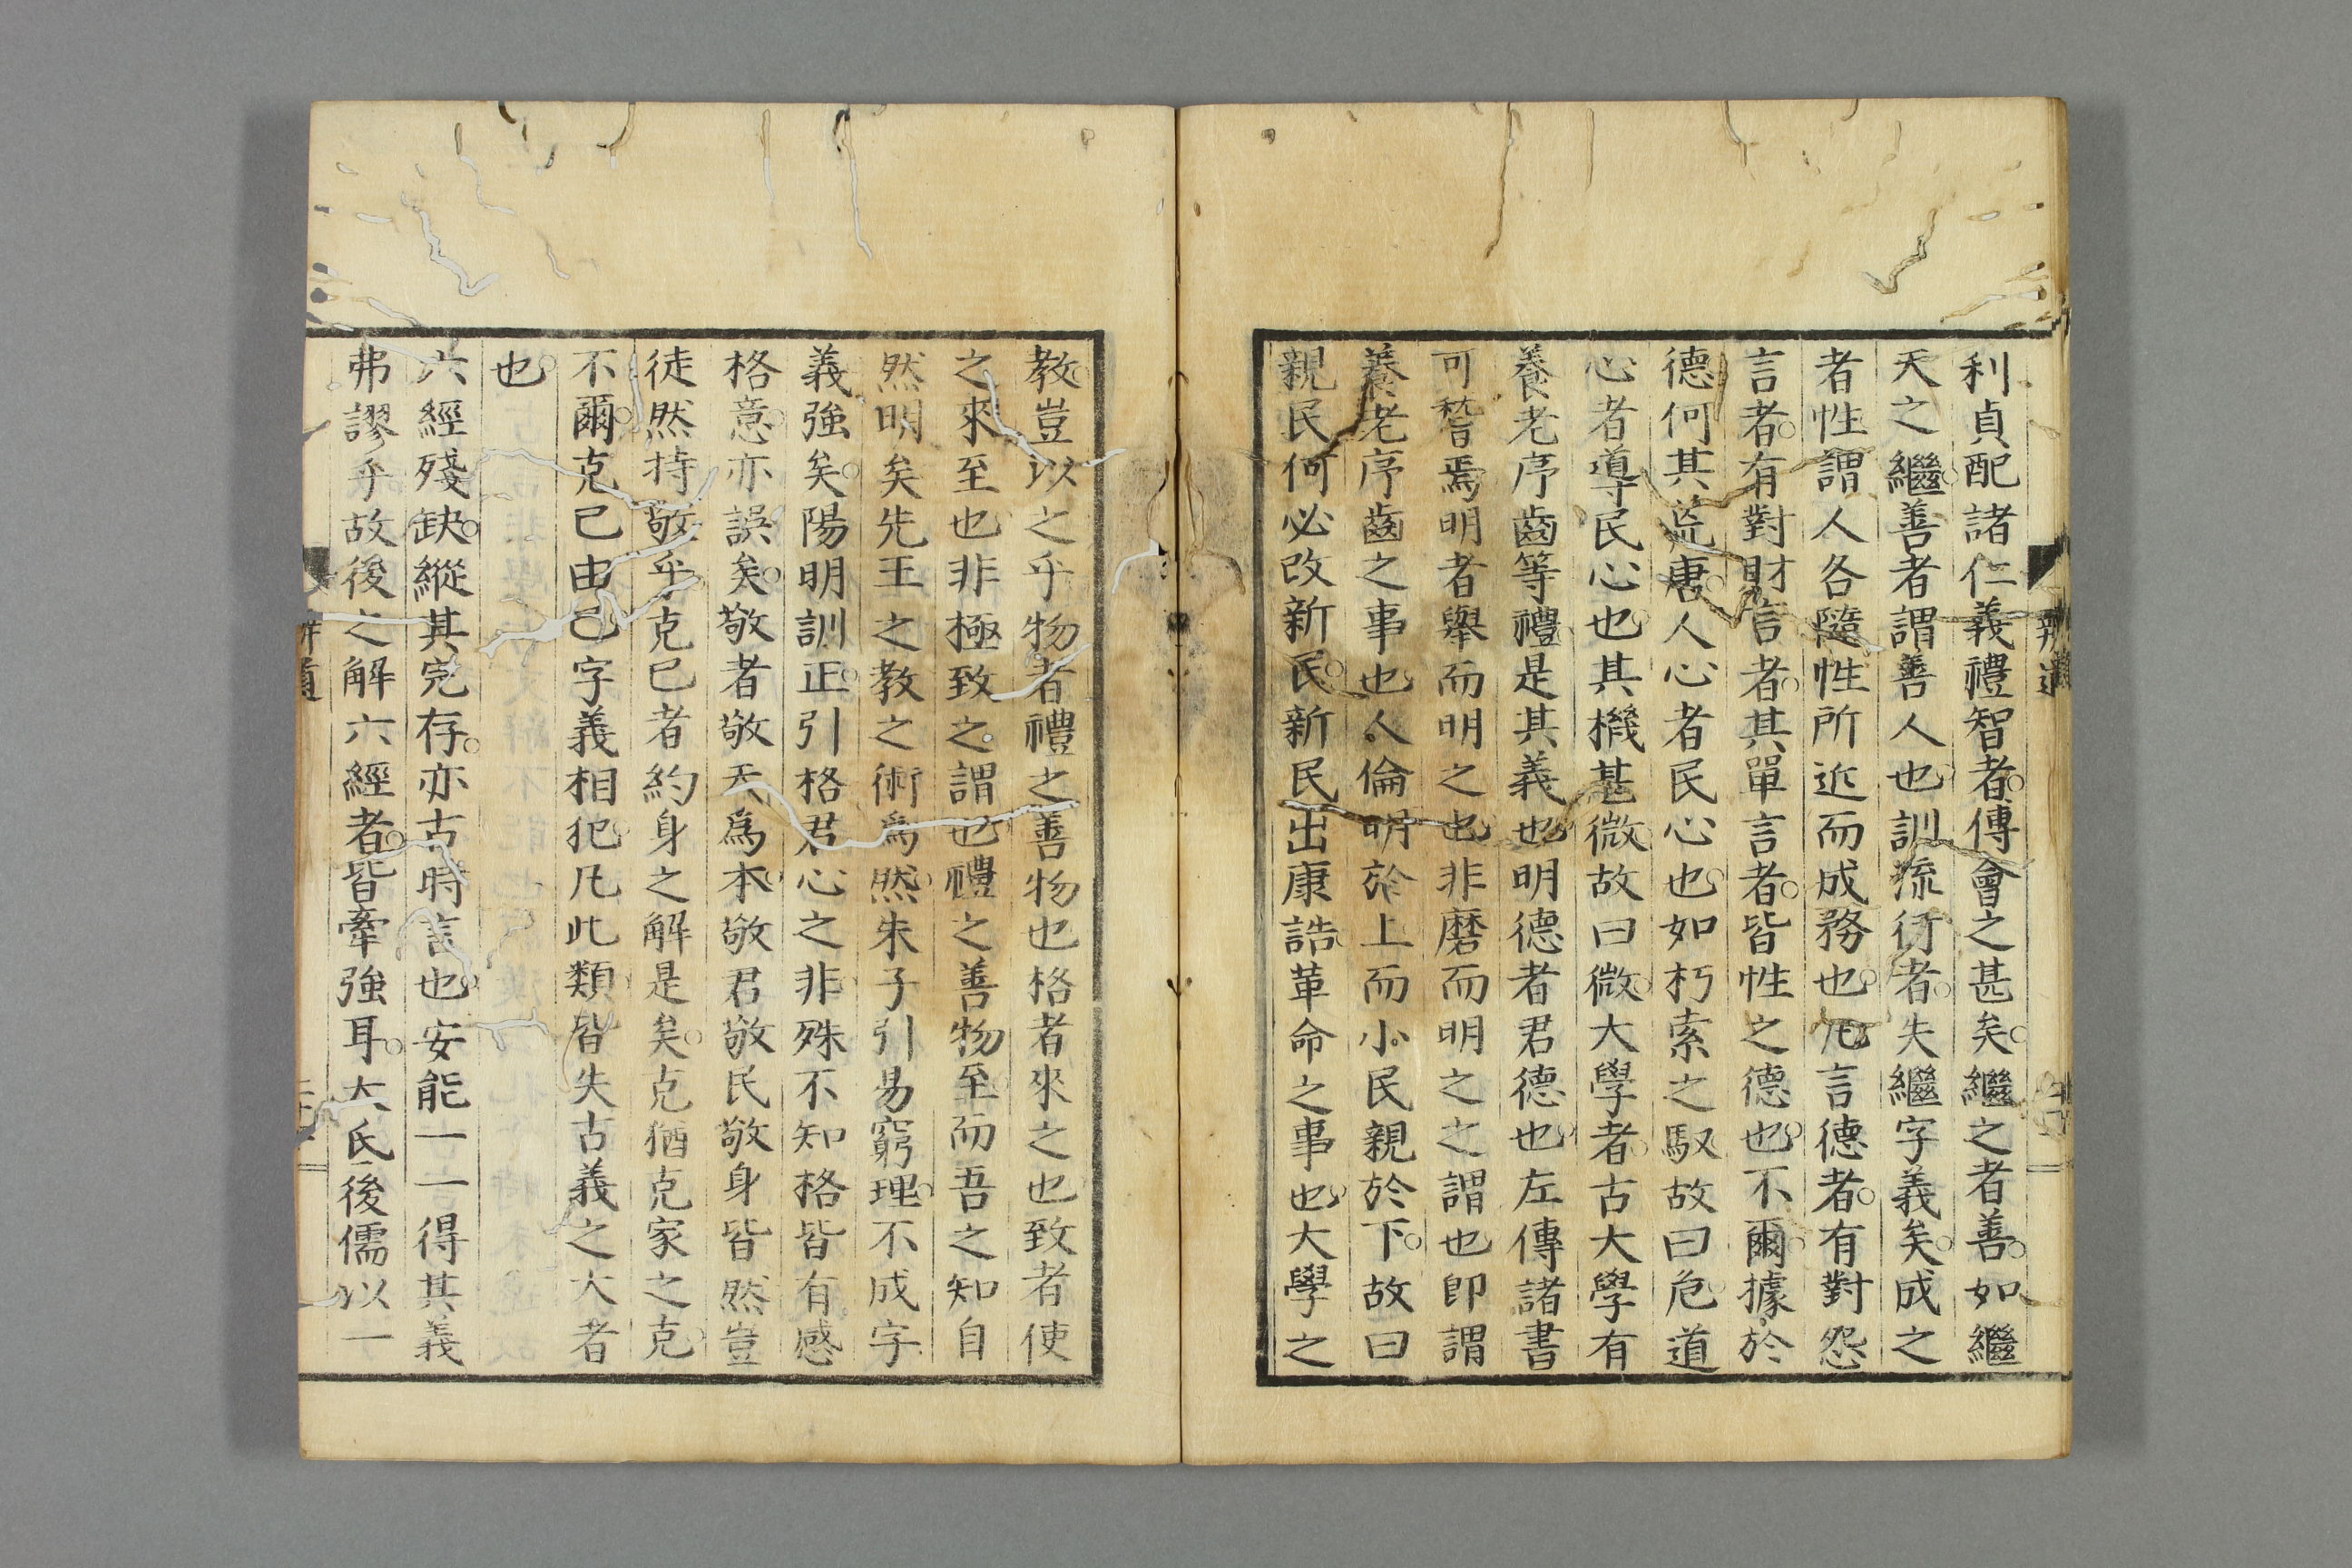 利貞配諸仁義禮智者傳會之甚矣繼之者善如繼
天之繼善者謂善人也訓流行者失繼字義矣成之
者性謂人各隨性所近而成務也凡言德者有對怨
言者有對財言者其單言者皆性之德也不爾據於
德何其荒唐人心者民心也如朽索之馭故曰危道
心者導民心也其機甚微故曰微大學者古大學有
養老序齒等禮是其義也明德者君德也左傳諸書
可稽焉明者舉而明之也非磨而明之之謂也卽謂
養老序齒之事也人倫明於上而小民親於下故曰
親民何必改新民新民出康誥革命之事也大學之
辨道
教豈以之乎物者禮之善物也格者來之也致者使
之來至也非極致之謂也禮之善物至而吾之知自
然明矣先王之教之術爲然朱子引易窮理不成字
義強矣陽明訓正引格君心之非殊不知格皆有感
格意亦誤矣敬者敬天爲本敬君敬民敬身皆然豈
徒然持敬乎克己者約身之解是矣克猶克家之克
不爾克己由己字義相犯凡此類皆失古義之大者
也
六經殘缺縱其完存亦古時言也安能一一得其義
弗謬乎故後之解六經者皆牽強耳大氐後儒以一